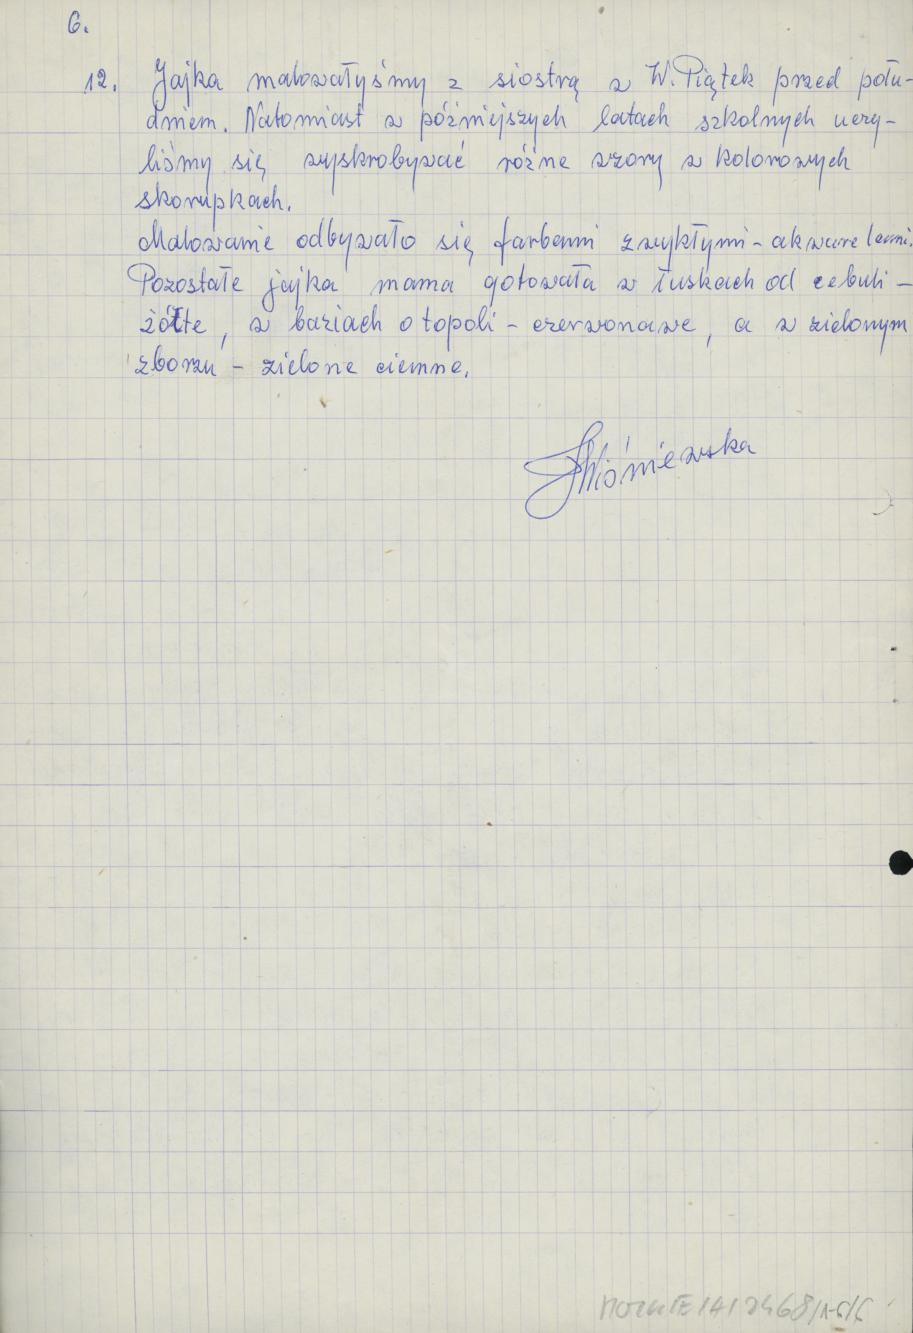 6.
12. Jajka malowałyśmy z siostrą w W. Piątek przed połu-
dniem. Natomiast w późniejszych latach szkolnych uczy-
liśmy się wyskrobywać różne wzory w kolorowych
skorupkach.
Malowanie odbywało się farbami zwykłymi - akwarelami.
Pozostałe jajka mama gotowała w łuskach od cebuli -
żółte, w baziach o topoli - czerwonawe, a w zielonym
zborzu - zielone ciemne.
Wiśniewska